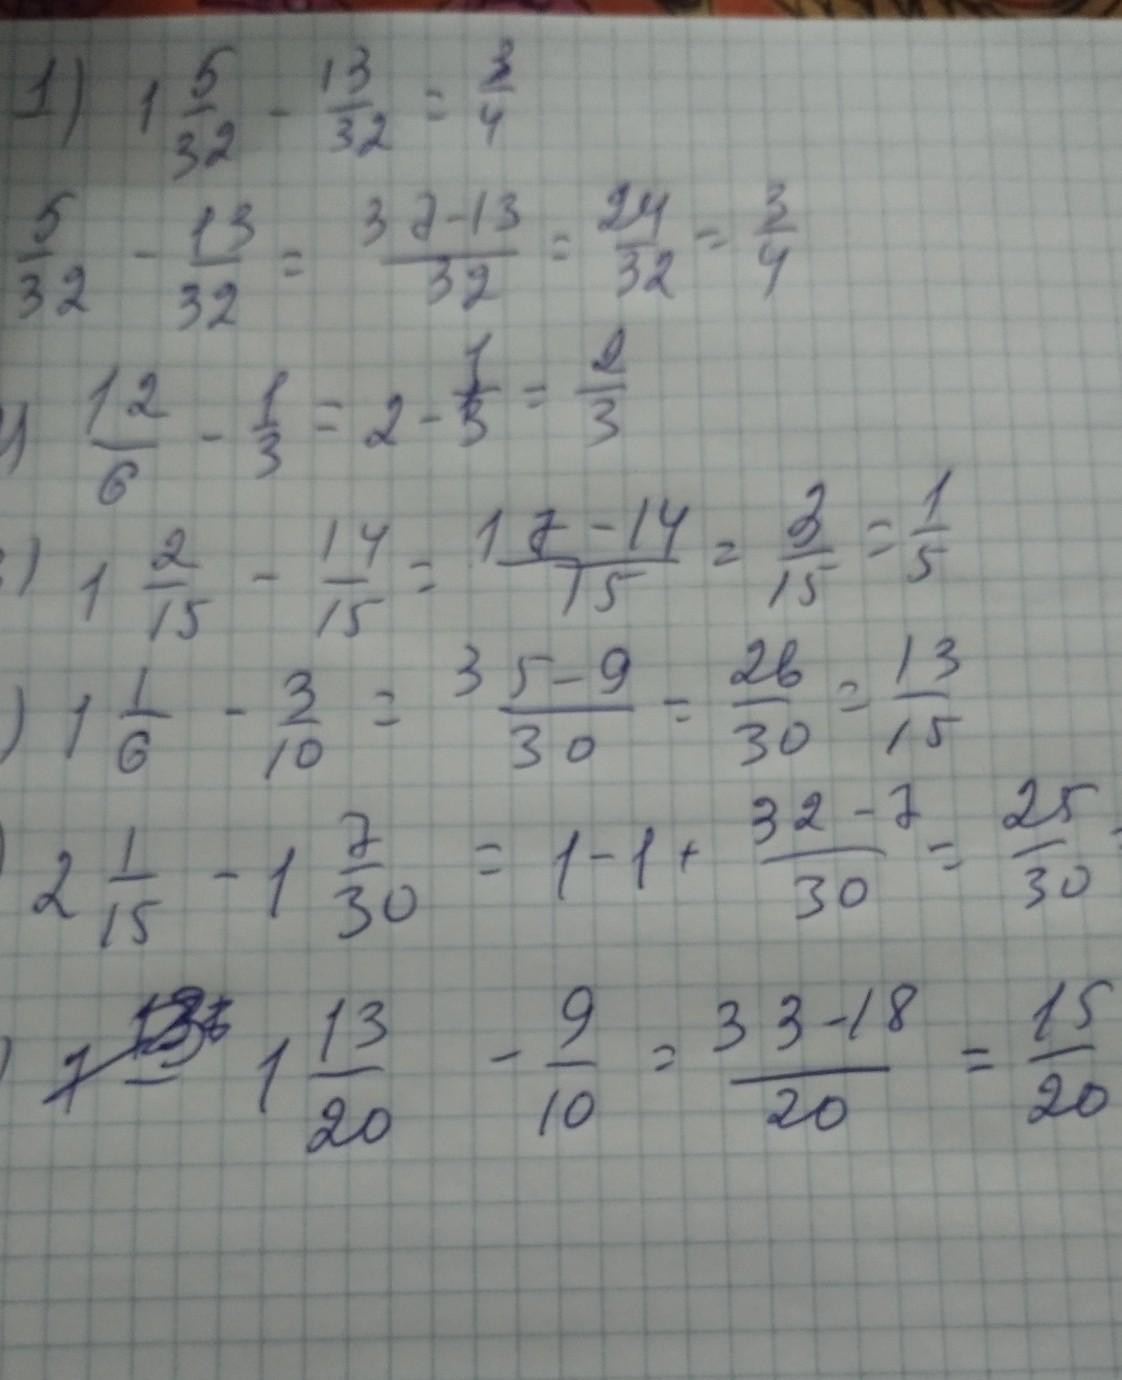 1) 1 5/32 - 13/32 = 3/4
5/32 - 13/32 = 37-13/32 = 24/32 = 3/4
12/6 - 1/3 = 2 - 1/3 = 2/3
) 1 2/15 - 14/15 = 17-14/15 = 3/15 = 1/5
) 1 1/6 - 3/10 = 35-9/30 = 26/30 = 13/15
) 2 1/15 - 1 7/30 = 1-1+ 32-7/30 = 25/30 =
) 1 13/20 - 9/10 = 33-18/20 = 15/20